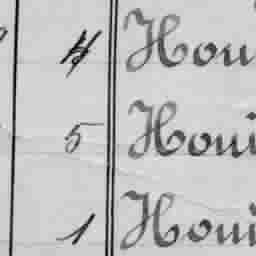 4 Hou
5 Houi
1 Houi